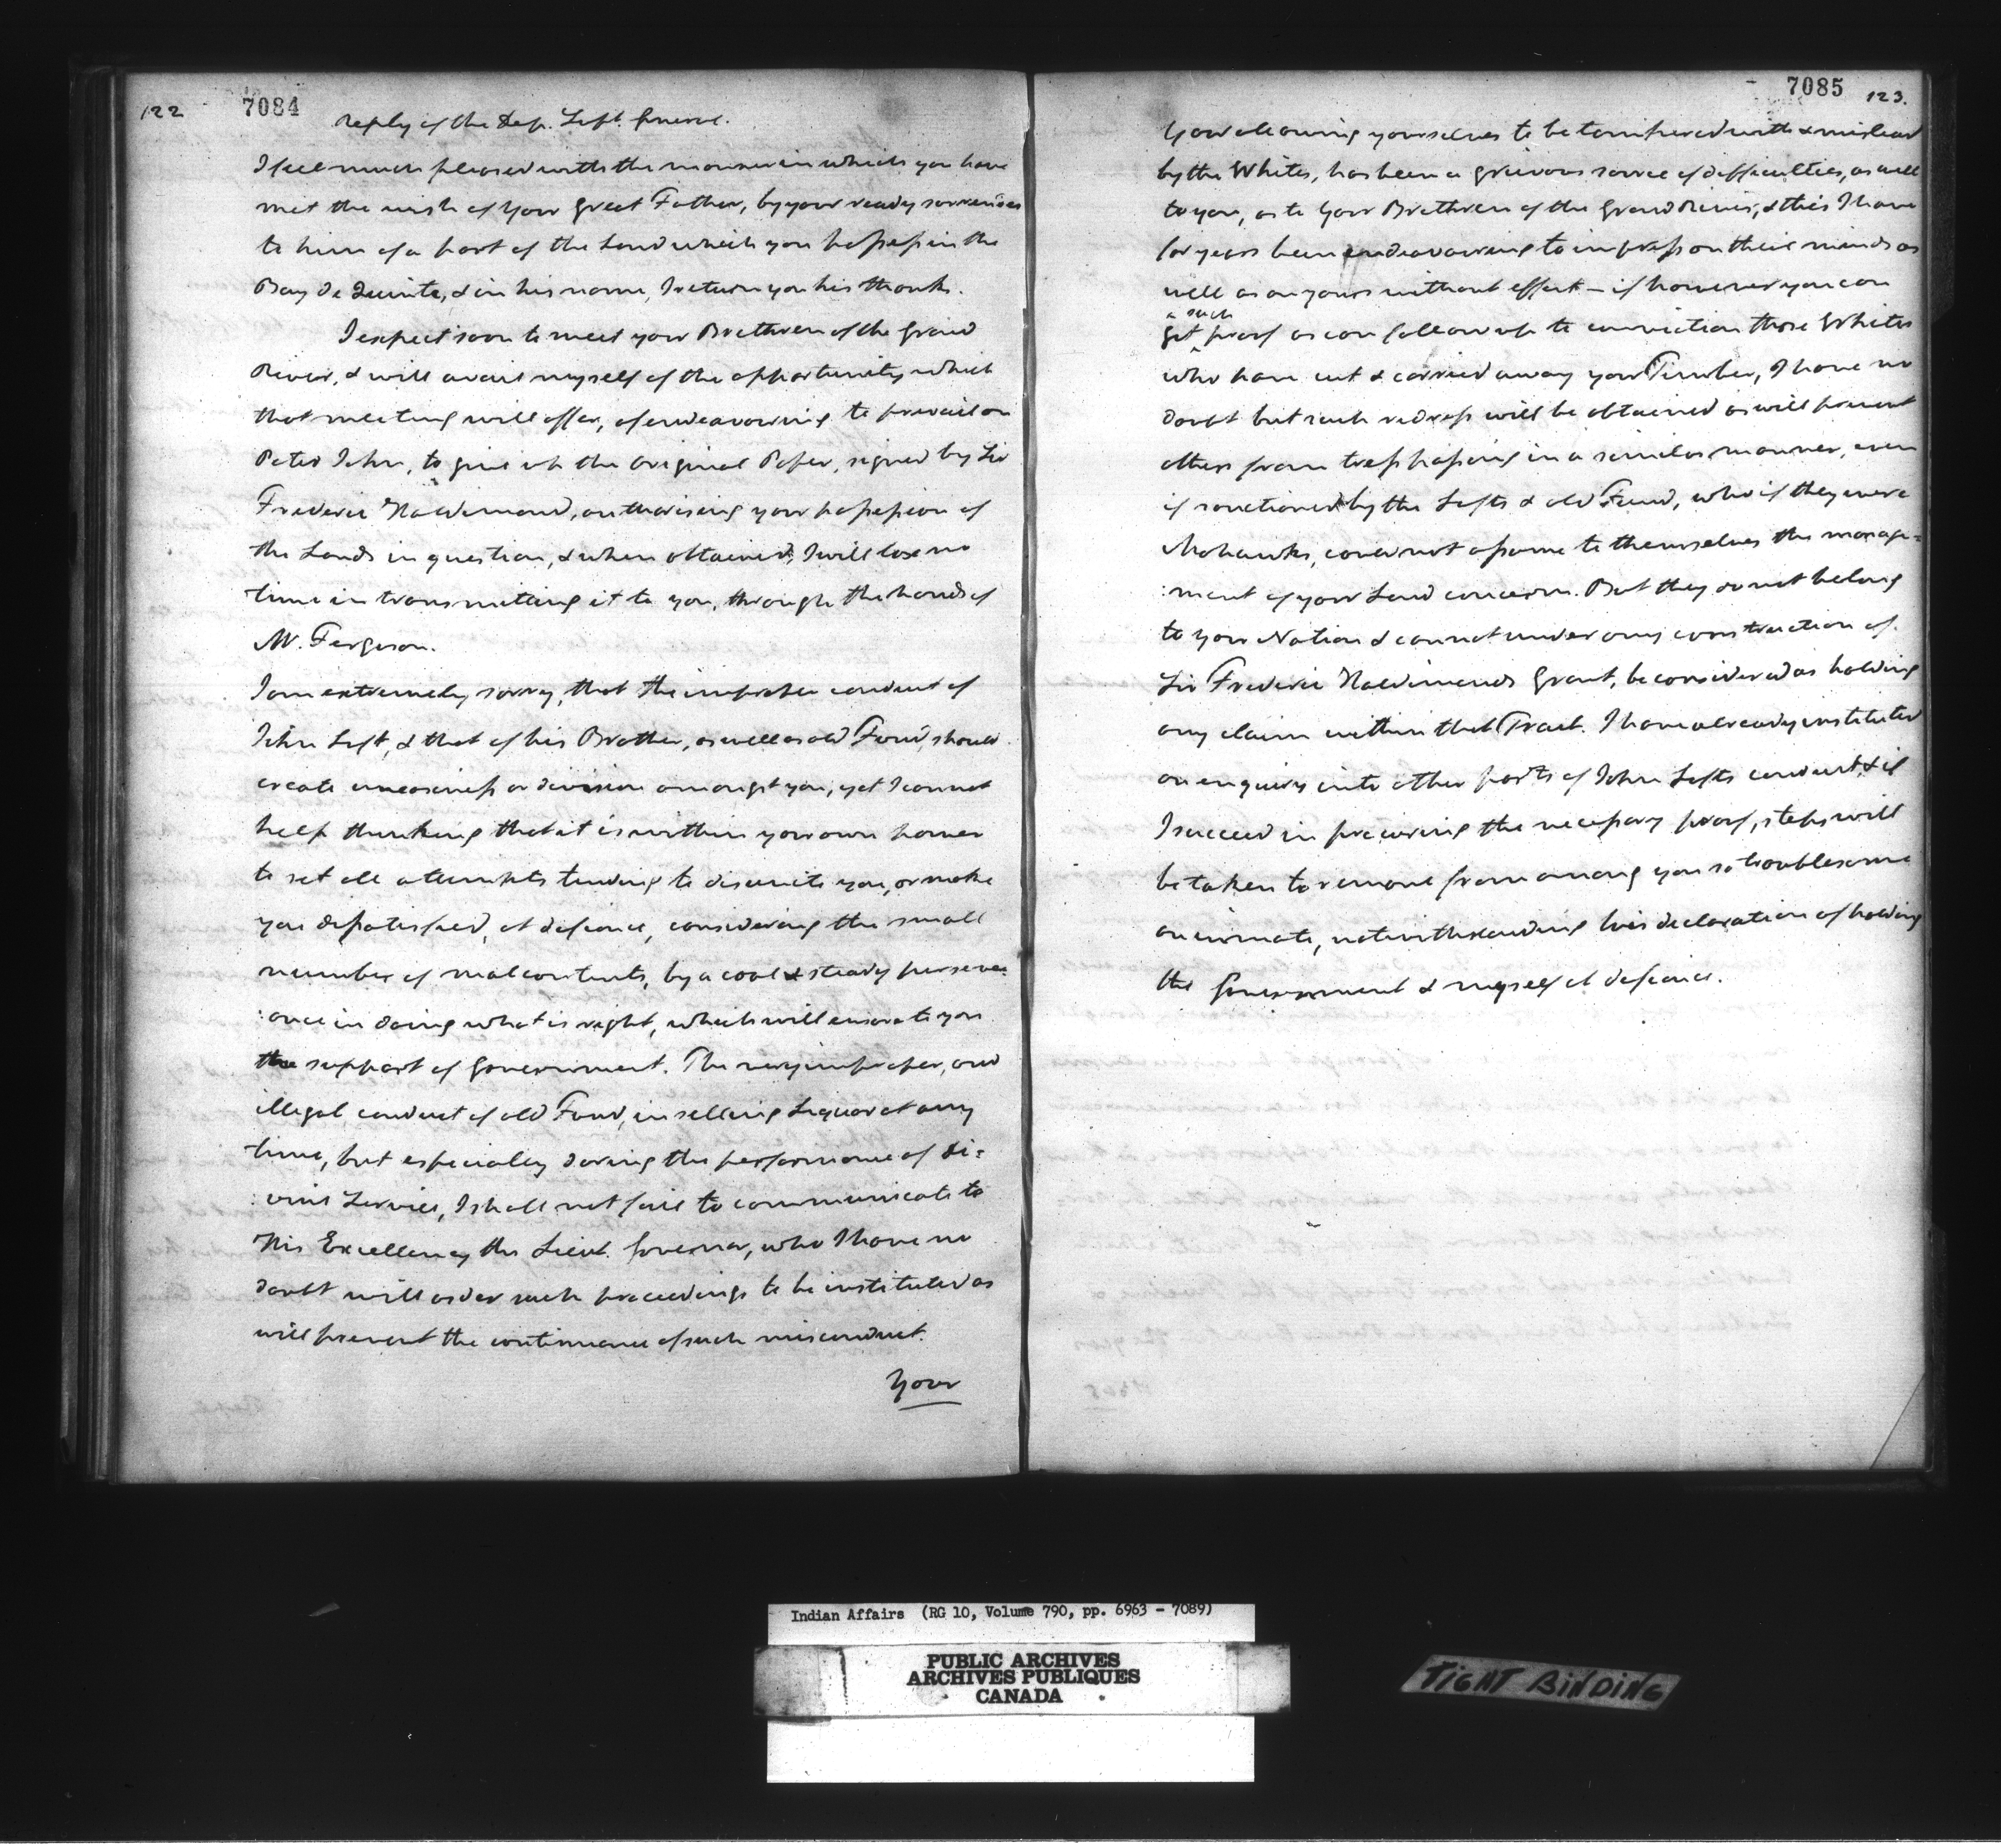 122
7084
Reply of the Dep. Supt. General.
I feel much pleased with the manner in which you have
met the wish of Your Great Father, by your ready surrender
to him of a part of the Land which you possess in the
Bay de Quinté, & in his name, I return you his thanks.
I expect soon to meet your Brethren of the Grand
River, & will avail myself of the opportunity which
that meeting will offer, of endeavouring to prevail on
Peter John, to give up the original Paper, signed by Sir
Frederic Haldimand, authorising your possession of
the Lands in question, & when obtained, I will lose no
time in transmitting it to you, through the hands of
Mr. Ferguson.
I am extremely sorry, that the improper conduct of
John Left, & that of his Brother, as well as old Ford, should
create uneasiness or division amongst you, yet I cannot
help thinking that it is within your own power
to set all attempts tending to disunite you, or make
you dissatisfied, at defiance, considering the small
number of malcontents, by a cool & steady persever
:ance in doing what is right, which will ensure to you
the support of Government. The very improper, and
illegal conduct of old Ford, in selling Liquor at any
time, but especially during the performance of Di=
:vine Service, I shall not fail to communicate to
His Excellency the Lieut. Governor, who I have no
doubt will order such proceedings to be instituted as
will prevent the continuance of such misconduct.
Your
7085
123.
Your allowing yourselves to be tampered with & mislead
by the Whites, has been a grievous source of difficulties, as well
to you, as to Your Brethren of the Grand River, & this I have
for years been endeavouring to impress on their minds as
well as on yours without effect – if however you can
such
get proof as can follow up to conviction those Whites
who have cut & carried away your Timber, I have no
doubt but such redress will be obtained as will prevent
others from trespassing in a similar manner, even
if sanctioned by the Lefts & old Ford, who if they were
Mohawks, could not assume to themselves the manage=
:ment of your Land concerns. But they do not belong
to your Nation & cannot under any construction of
Sir Frederic Haldimands Grant, be considered as holding
any claim within that Tract. I have already instituted
an enquiry into other parts of John Lefts conduct, & if
I succeed in procuring the necessary proof, steps will
be taken to remove from among you so troublesome
an inmate, notwithstanding his declaration of holding
the Government & myself at defiance.
Indian Affairs (RG 10, Volume 790, pp. 6963 - 7089)
PUBLIC ARCHIVES
ARCHIVES PUBLIQUES
CANADA
TIGHT BINDING